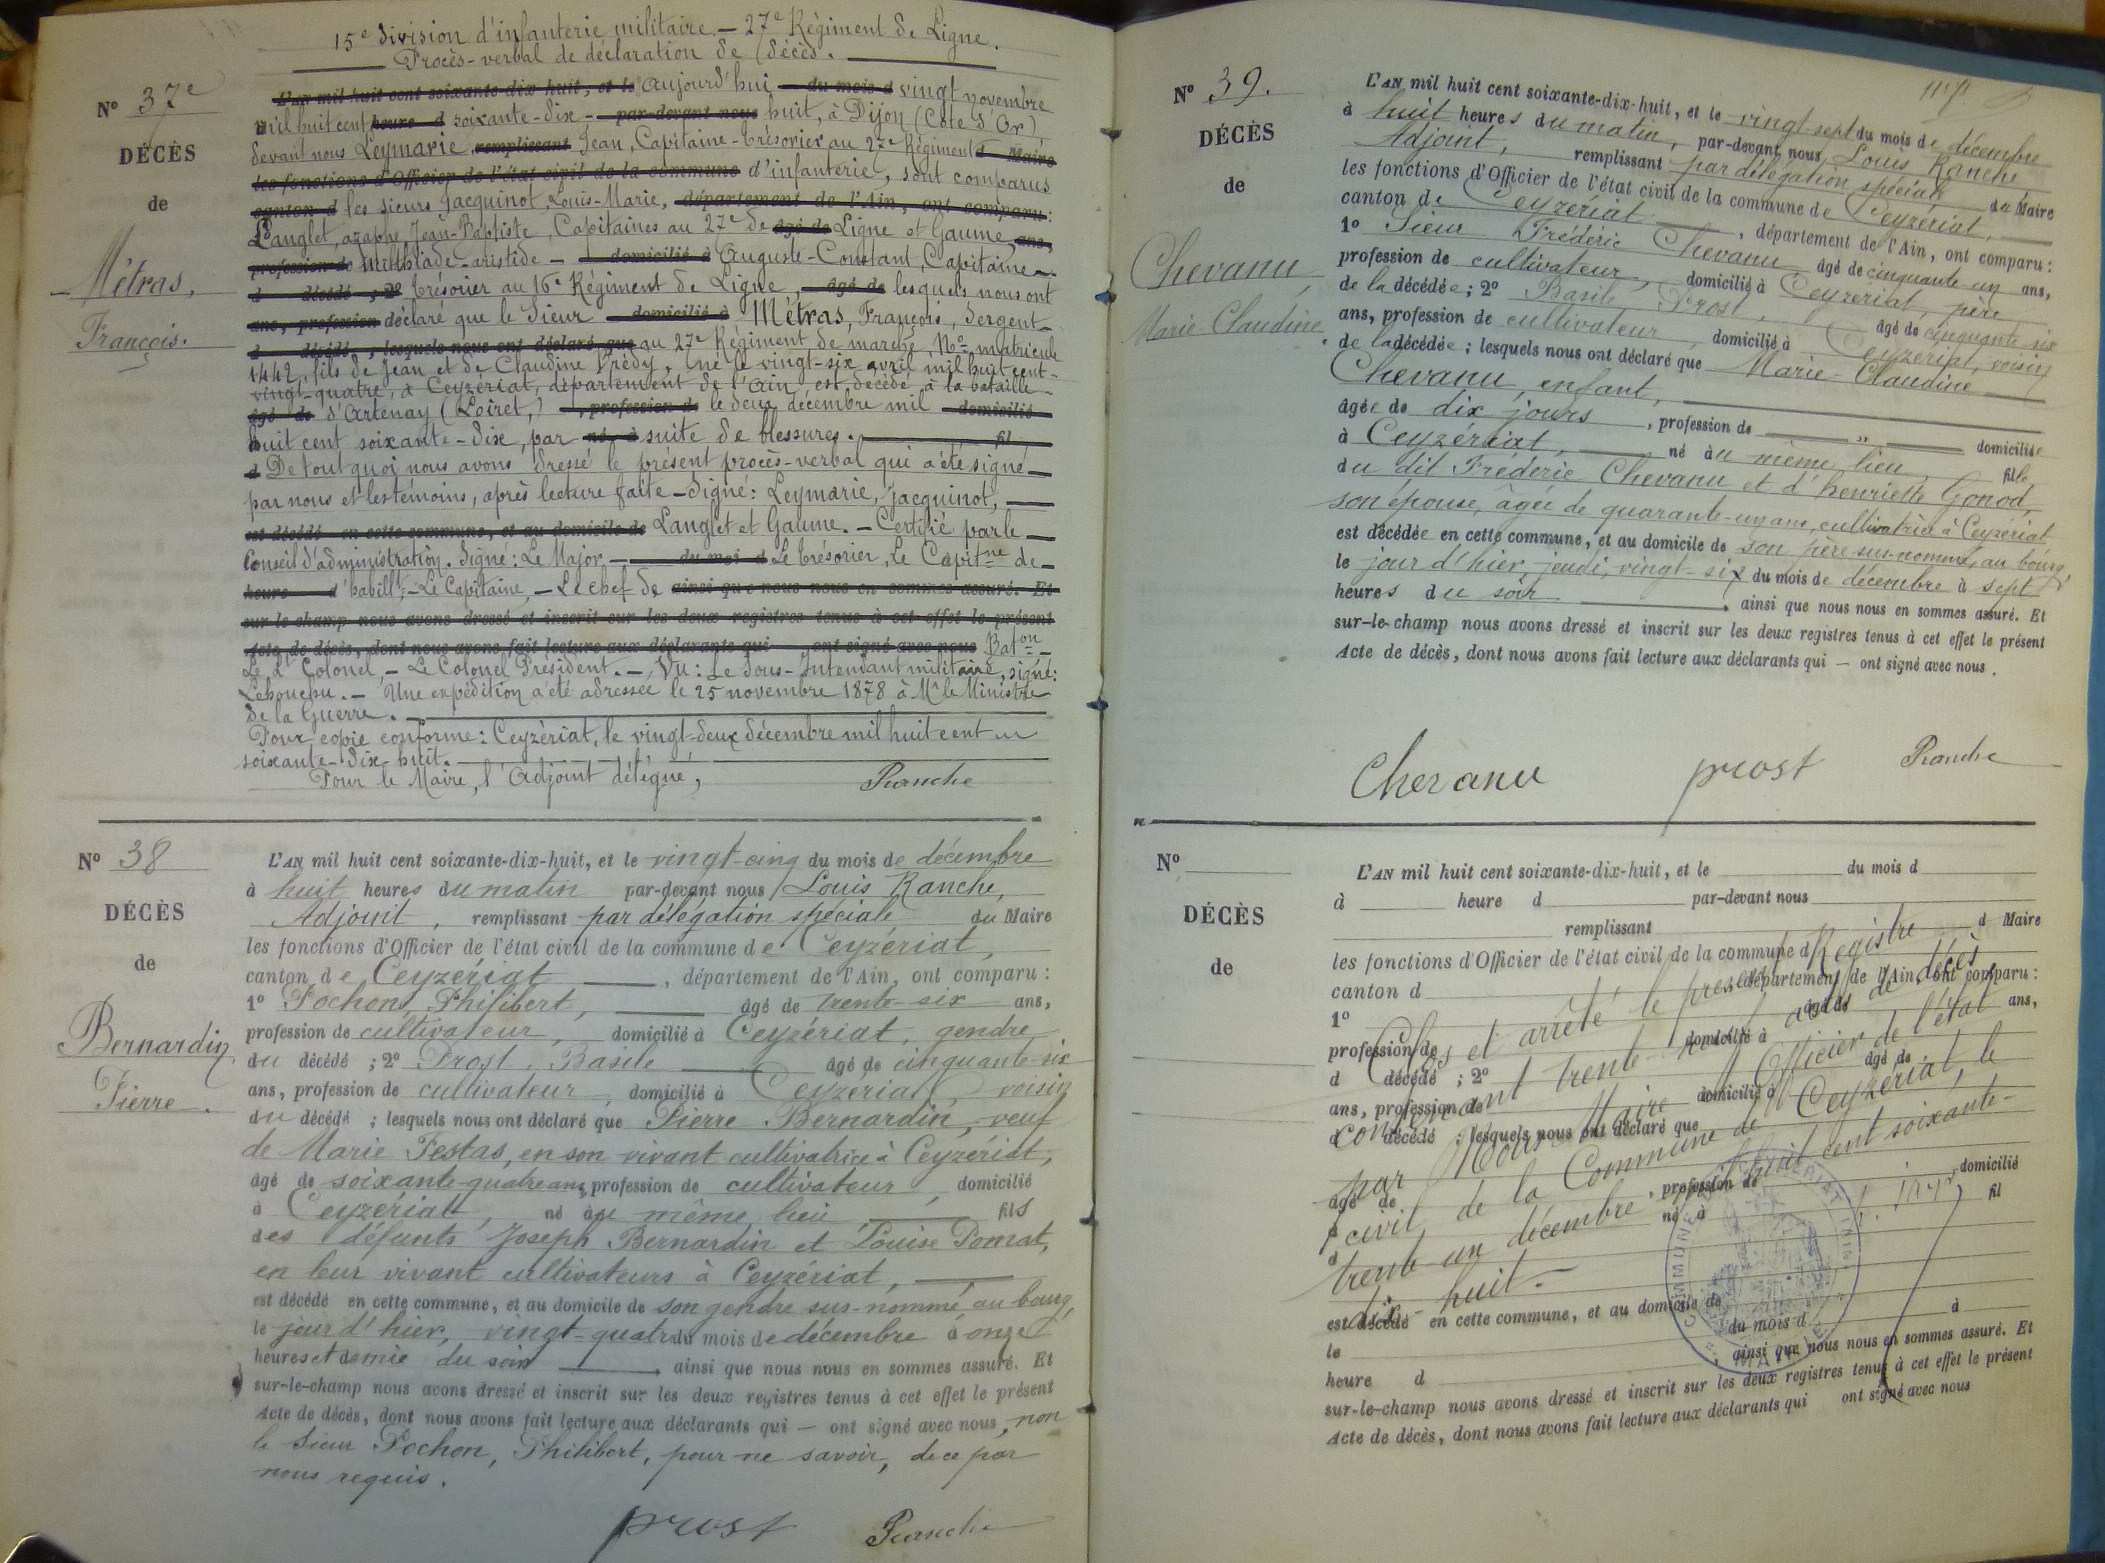 15e Division d'infanterie militaire — 27e Régiment de Ligne.
Procès-verbal de déclaration de décès.
N° 37e
DÉCÈS
de
Métras,
François.
L'AN mil huit cent soixante-dix-huit, et le aujourd'hui du mois d vingt novembre
mil huit cent heure d soixante-dix- par-devant nous huit, à Dijon (Côte d'Or),
devant nous Leymarie remplissant Jean, Capitaine-trésorier au 27e Régiment d Maire
les fonctions d'Officier de l'état civil de la commune d'infanterie, sont comparus
canton d les sieurs Jacquinot, Louis-Marie, département de l'Ain, ont comparu:
Langlet, Jean-Baptiste, Capitaines au 27e de âgé de Ligne et Gaume, ans,
profession de aristide — domicilié à Auguste-Constant, Capitaine-
d décédé ; 2° trésorier au 16e Régiment de Ligne, âgé de lesquels nous ont
ans, profession déclaré que le Sieur domicilié à Métras, François, Sergent
d décédé, lesquels nous ont déclaré que au 27e Régiment de marche, No matricule
1442, fils de Jean et de Claudine Prédy, né le vingt-six avril mil huit cent-
vingt-quatre, à Ceyzériat, département de l'Ain, est décédé à la bataille
âgé de d'Artenay (Loiret,) , profession de le deux décembre mil domicilié
huit cent soixante-dix, par né à suite de blessures. fil
d De tout quoi nous avons dressé le présent procès-verbal qui a été signé
par nous et les témoins, après lecture faite — Signé: Leymarie, Jacquinot,
est décédé en cette commune, et au domicile de Langlet et Gaume. — Certifié par le
Conseil d'administration. Signé: Le Major — du moi d Le trésorier, Le Capitne de
heure d'habillt — Le Capitaine, — Le chef de ainsi que nous nous en sommes assuré. Et
sur-le-champ nous avons dressé et inscrit sur les deux registres tenus à cet effet le présent
Acte de décès, dont nous avons fait lecture aux déclarants qui ont signé avec nous Baton —
Le Lt Colonel — Le Colonel Président. — Vu: Le Sous-Intendant militaire, signé:
— Une expédition a été adressée le 25 novembre 1878 à Mr le Ministre
de la Guerre.
Pour copie conforme: Ceyzériat, le vingt-deux décembre mil huit cent
soixante-dix-huit.
Pour le Maire, l'Adjoint délégué,
Ranche
N° 38
DÉCÈS
de
Bernardin
Pierre.
L'AN mil huit cent soixante-dix-huit, et le vingt-cinq du mois de décembre
à huit heures du matin par-devant nous Louis Ranche,
Adjoint, remplissant par délégation spéciale du Maire
les fonctions d'Officier de l'état civil de la commune de Ceyzériat,
canton de Ceyzériat, département de l'Ain, ont comparu :
1° Pochon, Philibert, âgé de trente-six ans,
profession de cultivateur, domicilié à Ceyzériat, gendre
du décédé ; 2° Prost, Basile âgé de cinquante-six
ans, profession de cultivateur, domicilié à Ceyzériat, voisin
du décédé ; lesquels nous ont déclaré que Pierre Bernardin, veuf
de Marie Festas, en son vivant cultivatrice à Ceyzériat,
âgé de soixante-quatre ans, profession de cultivateur, domicilié
à Ceyzériat, né au même lieu fils
des défunts Joseph Bernardin et Louise Pomat,
en leur vivant cultivateurs à Ceyzériat,
est décédé en cette commune, et au domicile de son gendre sus-nommé, au bourg,
le jour d'hier, vingt-quatre du mois de décembre à onze
heures et demie du soir ainsi que nous nous en sommes assuré. Et
sur-le-champ nous avons dressé et inscrit sur les deux registres tenus à cet effet le présent
Acte de décès, dont nous avons fait lecture aux déclarants qui — ont signé avec nous, non
le Sieur Pochon, Philibert, pour ne savoir, de ce par
nous requis.
prost
Ranche
N° 39.
DÉCÈS
de
Chevanu,
Marie Claudine.
L'AN mil huit cent soixante-dix-huit, et le vingt-sept du mois de décembre
à huit heures du matin, par-devant nous Louis Ranche
Adjoint, remplissant par délégation spéciale du Maire
les fonctions d'Officier de l'état civil de la commune de Ceyzériat,
canton de Ceyzériat, département de l'Ain, ont comparu :
1° Sieur Frédéric Chevanu âgé de cinquante-un ans,
profession de cultivateur, domicilié à Ceyzériat, père
de la décédée ; 2° Basile Prost, âgé de cinquante-six
ans, profession de cultivateur, domicilié à Ceyzériat, voisin
de la décédée ; lesquels nous ont déclaré que Marie-Claudine
Chevanu, enfant,
âgée de dix jours, profession de „ domiciliée
à Ceyzériat, né au même lieu, fille
du dit Fréderic Chevanu et d'henriette Gonod,
son épouse, âgée de quarante-un ans, cultivatrice à Ceyzériat,
est décédée en cette commune, et au domicile de son père sus-nommé, au bourg,
le jour d'hier, jeudi, vingt-six du mois de décembre à sept
heures du soir ainsi que nous nous en sommes assuré. Et
sur-le-champ nous avons dressé et inscrit sur les deux registres tenus à cet effet le présent
Acte de décès, dont nous avons fait lecture aux déclarants qui — ont signé avec nous.
Chevanu
prost
Ranche
N°
DÉCÈS
de
L'AN mil huit cent soixante-dix-huit, et le du mois d
à heure d par-devant nous
remplissant d Maire
les fonctions d'Officier de l'état civil de la commune d
canton d département de l'Ain, ont comparu :
1° âgé de ans,
profession de domicilié à
d décédé ; 2° âgé de
ans, profession de domicilié à
d décédé ; lesquels nous ont déclaré que
âgé de , profession de , domicilié
à né à fil
d
est décédé en cette commune, et au domicile de
le du mois d à
heure d , ainsi que nous nous en sommes assuré. Et
sur-le-champ nous avons dressé et inscrit sur les deux registres tenus à cet effet le présent
Acte de décès, dont nous avons fait lecture aux déclarants qui ont signé avec nous
Clos et arrêté le présent Registre
contenant trente-neuf actes de décès
par Nous, Maire et Officier de l'état
civil de la Commune de Ceyzériat, le
trente-un décembre mil huit cent soixante-
dix-huit.—
COMMUNE CEYZERIAT (AIN)
MAIRIE